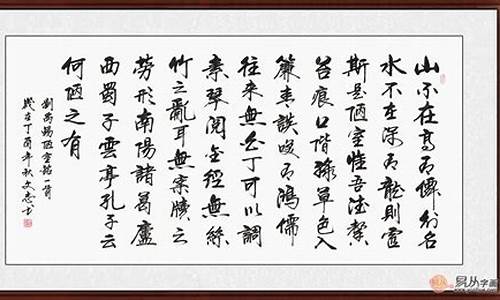 山不在高有僊則名
水不在深有龍則靈
斯是陋室惟吾德馨
苔痕上階緑草色入
簾青談咲有鴻儒
往來無白丁可以調
素琴閱金經無絲
竹之亂耳無案牘之
勞形南陽諸葛廬
西蜀子雲亭孔子云
何陋之有
劉禹錫陋室銘一首
歲在丁酉年秋文志書
易从字画